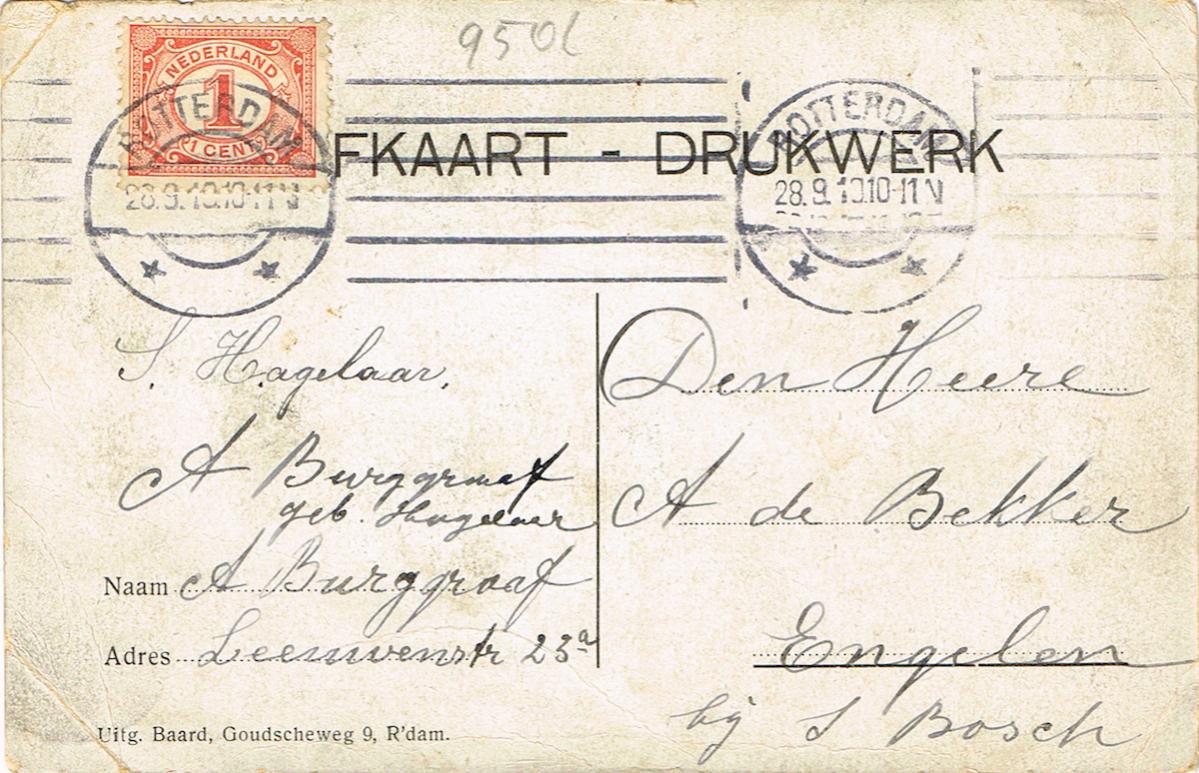 950L
NEDERLAND
1
1 CENT
ROTTERDAM
28.9.10.10-11 N
ROTTERDAM
28.9.10.10-11 N
FKAART - DRUKWERK
S. Hagelaar.
A Burggraaf
geb. Hagelaar
Naam A Burggraaf
Adres Leeuwenstr 23a
Uitg. Baard, Goudscheweg 9, R'dam.
Den Heere
A de Bekker
Engelen
bij S Bosch